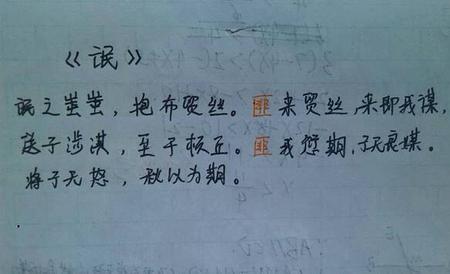 《氓》
氓之蚩蚩，抱布贸丝。匪来贸丝，来即我谋，
送子涉淇，至于顿丘。匪我愆期，子无良媒。
将子无怒，秋以为期。